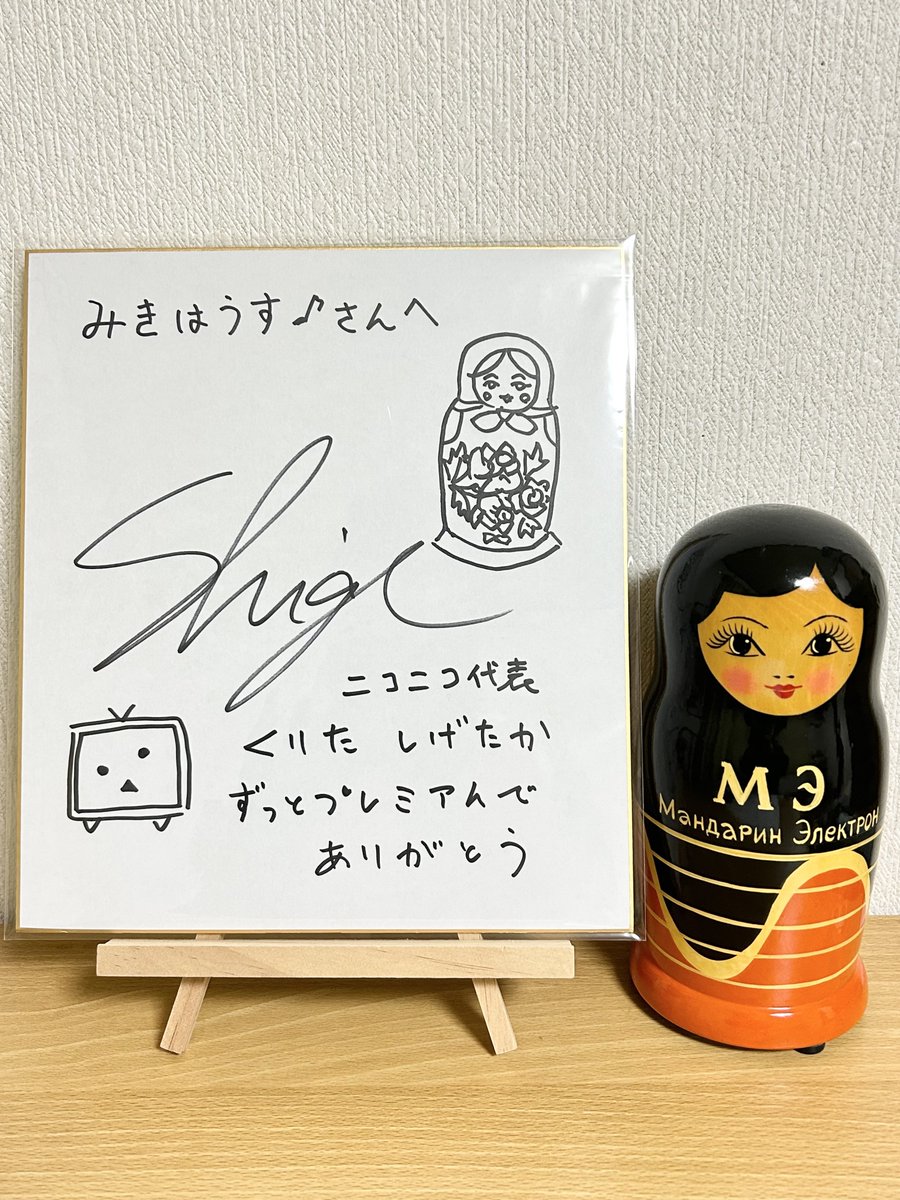 みきはうす♪さんへ
Shige
ニコニコ代表
くりた しげたか
ずっとプレミアムで
ありがとう
МЭ
Мандарин Электрон